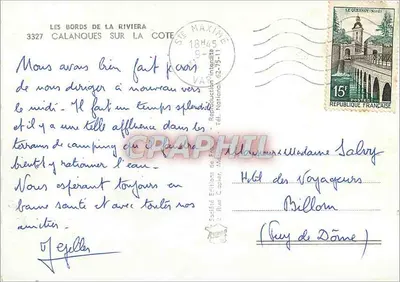 LES BORDS DE LA RIVIERA
3327 CALANQUES SUR LA COTE
Nous avons bien fait
de nous diriger à nouveau vers
le midi - Il fait un temps splendide
et il y a une telle affluence dans les
terrains de camping qu'il faudra
bientôt y rationner l'eau.
Nous espérant toujours en
bonne santé et avec toutes nos
amitiés.
STE MAXIME
18H45
VAR
LE QUESNOY
15F
POSTES
REPUBLIQUE FRANÇAISE
Reproduction interdite
CPAPHIL
Monsieur Madame Salvy
Hôtel des Voyageurs
Billom
(Puy de Dôme)